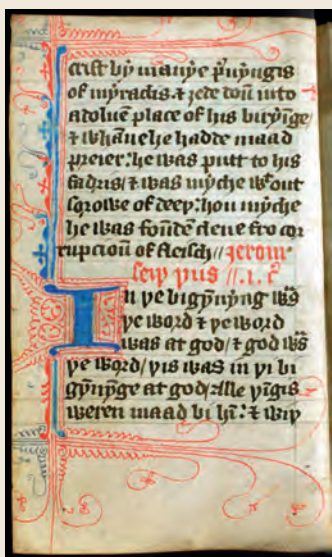 crist bi manye pυyngis
of myraclis ⁊ ȝede doū into
a doluē place of his biryīge/
⁊ whāne he hadde maad
preier: he was putt to his
fadris/ ⁊ was myche wtout
sorowe of deeþ: hou myche
he was foūdē clene fro cor
rupcioū of fleisch// Jerom
seiþ þus //.1.cº
In þe bigynnyng was
þe word ⁊ þe word
was at god/ ⁊ god was
þe word/ þis was in þe bi
gynnynge at god/ alle þīgis
weren maad bi hī: ⁊ wiþ